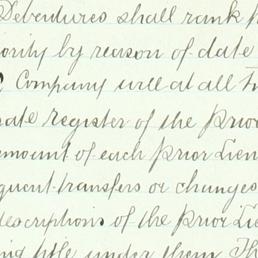 Debentures shall rank p
ority by reason of date
Company will at all t
rate register of the prior
amount of each prior Lien
quent transfers or changes
descriptions of the Prior Lie
ing title under them Th